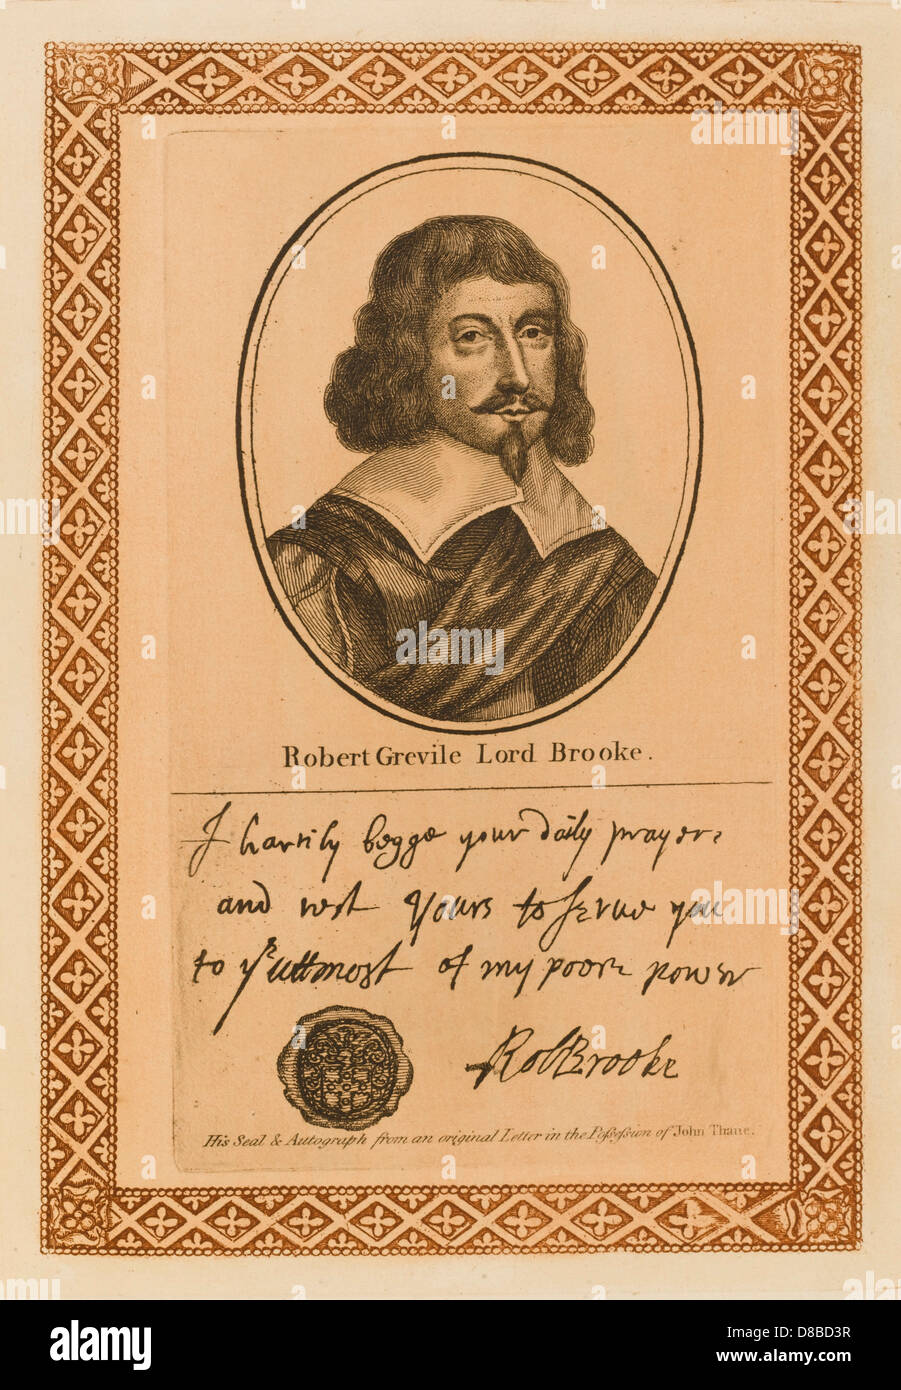 Robert Grevile Lord Brooke.
I hartily begge your daily prayers
and rest yours to serve you
to yᵉ uttmost of my poore power
RobBrooke
His Seal & Autograph from an original Letter in the Poſseſsion of John Thane.
a
alamy stock photo
alamy
Image ID: D8BD3R
www.alamy.com